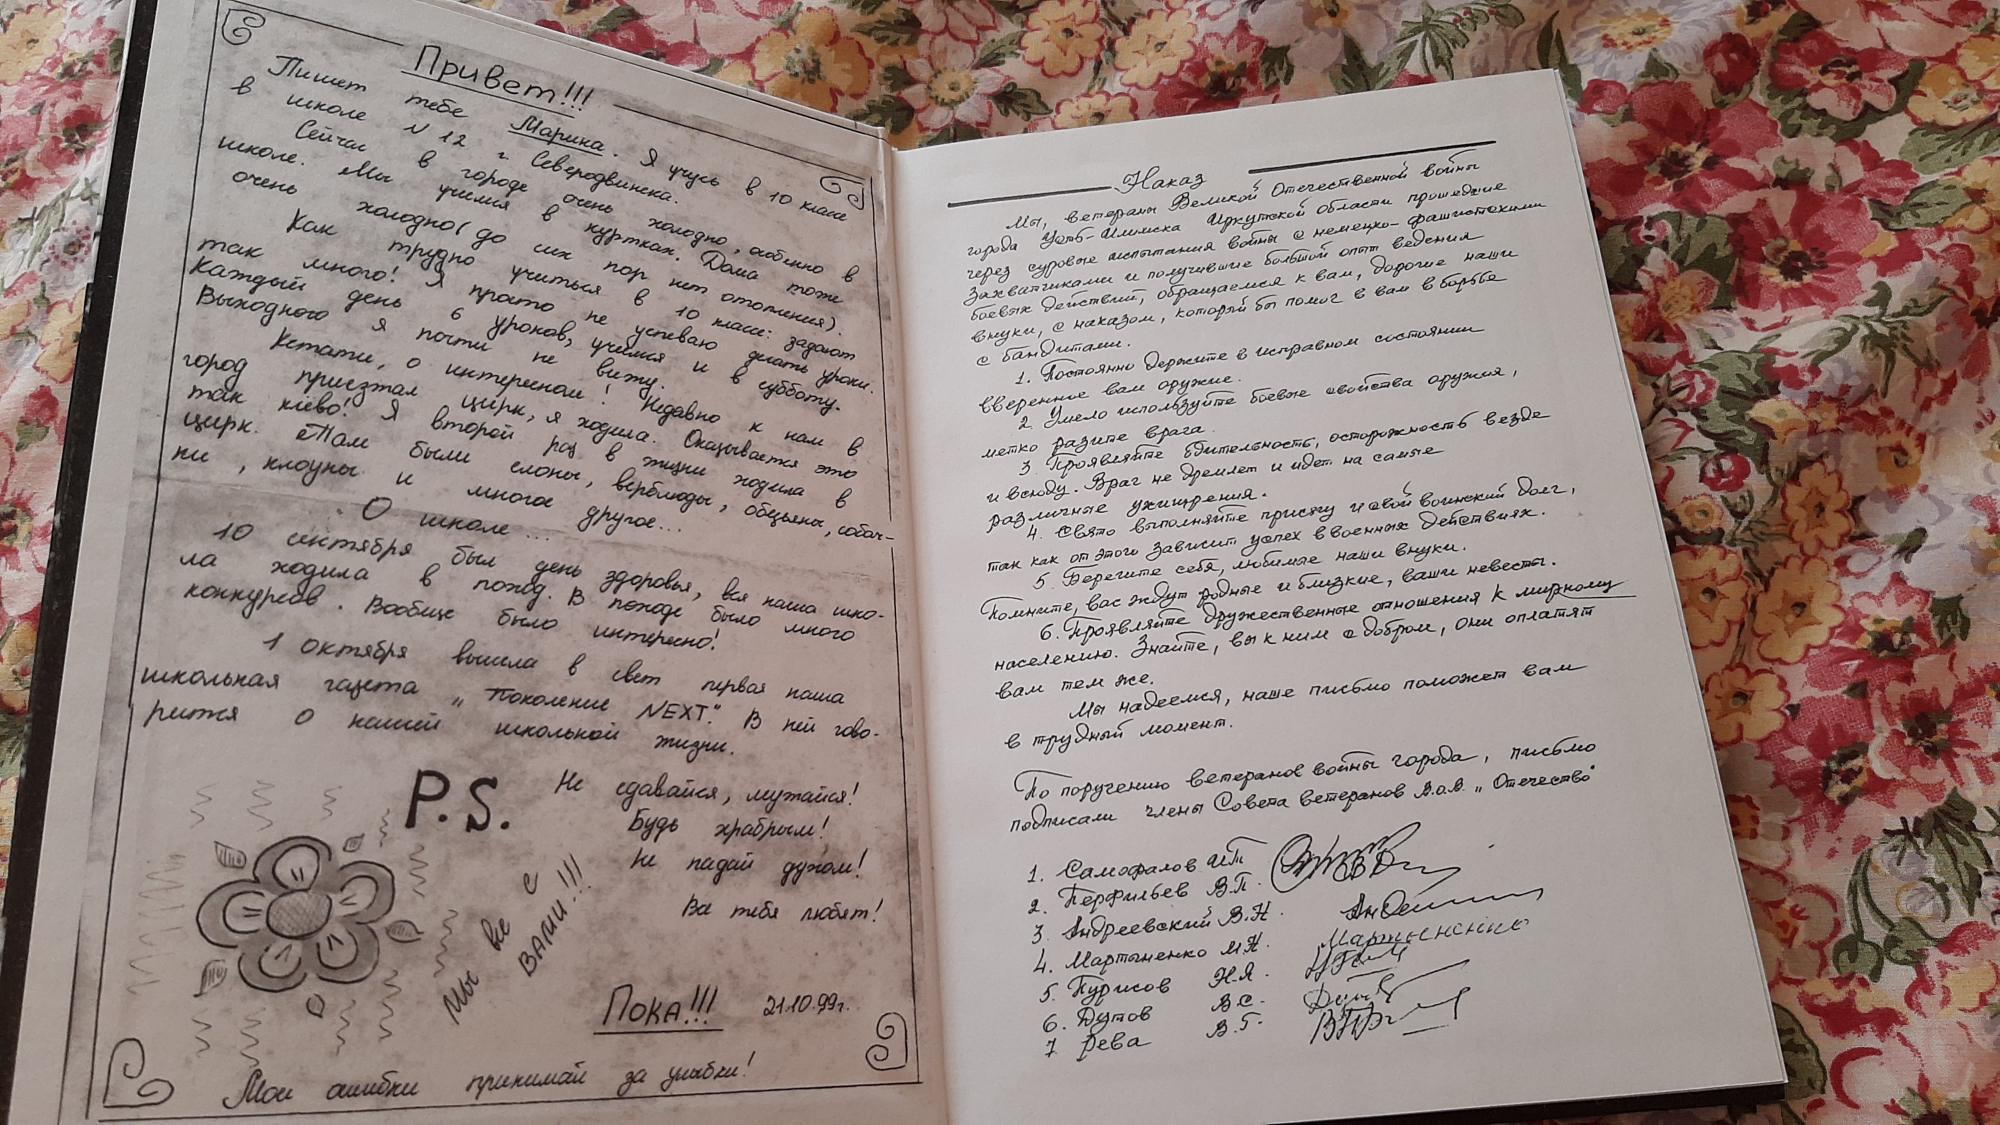 Привет!!!
Пишет тебе Марина. Я учусь в 10 классе
в школе N 12 г. Северодвинска.
Сейчас в городе очень холодно, особенно в
школе. Мы учимся в куртках. Дома тоже
очень холодно (до сих пор нет отопления).
Как трудно учиться в 10 классе: задают
так много! Я просто не успеваю делать уроки.
Каждый день 6 уроков, учимся и в субботу.
Выходного я почти не вижу.
Кстати, о интересном! Недавно к нам в
город приезжал цирк, я ходила. Оказывается это
так клёво! Я второй раз в жизни ходила в
цирк. Там были слоны, верблюды, обезьяны, собач-
ки, клоуны и многое другое...
О школе...
10 сентября был день здоровья, вся наша шко-
ла ходила в поход. В походе было много
конкурсов. Вообще было интересно!
1 октября вышла в свет первая наша
школьная газета „Поколение NEXT". В ней гово-
рится о нашей школьной жизни.
P.S. Не сдавайся, мужайся!
Будь храбрым!
Не падай духом!
Ва тебя любят!
Мы все с
ВАМИ!!!
Пока!!! 21.10.99г.
Мои ошибки принимай за улыбки!
Наказ
Мы, ветераны Великой Отечественной войны
города Усть-Илимска Иркутской области прошедшие
через суровые испытания войны с немецко-фашистскими
захватчиками и получившие большой опыт ведения
боевых действий, обращаемся к вам, дорогие наши
внуки, с наказом, который бы помог в вам в борьбе
с бандитами.
1. Постоянно держите в исправном состоянии
вверенное вам оружие.
2. Умело используйте боевые свойства оружия,
метко разите врага.
3. Проявляйте бдительность, осторожность везде
и всюду. Враг не дремлет и идет на самые
различные ухищрения.
4. Свято выполняйте присягу и свой воинский долг,
так как от этого зависит успех в военных действиях.
5. Берегите себя, любимые наши внуки.
Помните, вас ждут родные и близкие, ваши невесты.
6. Проявляйте дружественные отношения к мирному
населению. Знайте, вы к ним с добром, они оплатят
вам тем же.
Мы надеемся, наше письмо поможет вам
в трудный момент.
По поручению ветеранов войны города, письмо
подписали члены Совета ветеранов В.О.В. „Отечество"
1. Самофалов И.Т.
2. Перфильев В.П.
3. Андреевский В.Н.
4. Мартыненко М.Н. Мартыненко
5. Пурисов Н.Я.
6. Дутов В.С.
7 Рева В.Г.